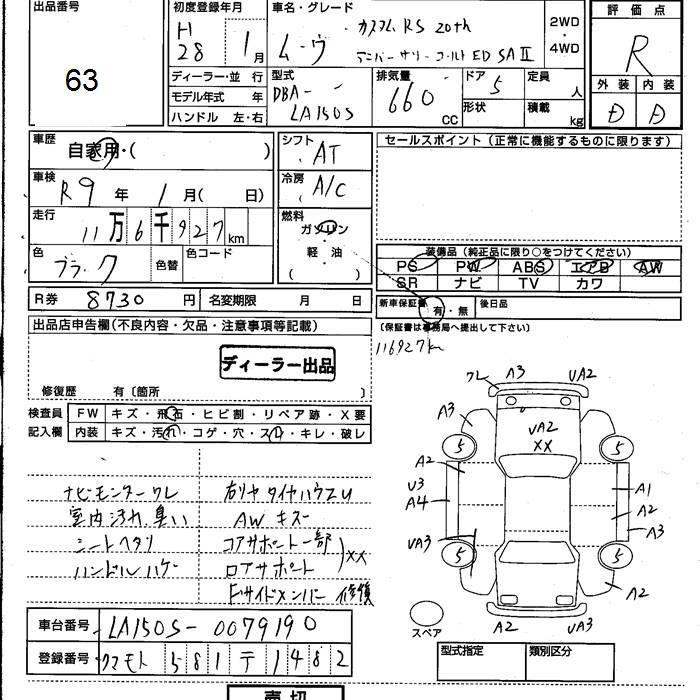 出品番号
63
初度登録年月
H 28 1 月
車名・グレード
ム-ヴ カスタム RS 20th
アニバーサリーゴールドED SAⅡ
2WD
・
4WD
評価点
R
外装 内装
D D
ディーラー・並行
モデル年式 年
ハンドル 左・右
型式
DBA-
LA150S
排気量
660 CC
ドア 5
形状
定員 人
積載 kg
車歴
自家用・( )
シフト
AT
車検
R 9 年 1 月( 日)
冷房
A/C
走行
11 万 6 千 9 2 7 km
燃料
ガソリン
・
軽油
( )
色
ブラック
色替
色コード
R券 8730 円
名変期限 月 日
セールスポイント (正常に機能するものに限ります)
装備品 (純正品に限り○をつけてください)
PS PW ABS エアB AW
SR ナビ TV カワ
新車保証書 有・無
後日品
(保証書は事務局へ提出して下さい)
116927km
出品店申告欄(不良内容・欠品・注意事項等記載)
ディーラー出品
修復歴 有〔箇所 〕
検査員 FW キズ・飛石・ヒビ割・リペア跡・X要
記入欄 内装 キズ・汚れ・コゲ・穴・スレ・キレ・破レ
ナビモニター ワレ
室内汚れ臭い
シートヘタリ
ハンドルハゲ
右リヤタイヤハウスU
AW キズ
コアサポート一部
ロアサポート
)XX
Fサイドメンバー 修復
ワレ A3 UA2
A3
UA2
XX
5 5
A2
U3
A4
A1
A2
A3
UA3
5 5
A2
A2 UA3
スペア
車台番号 LA150S-0079190
登録番号 クマモト 581 テ 1482
型式指定 類別区分
売切